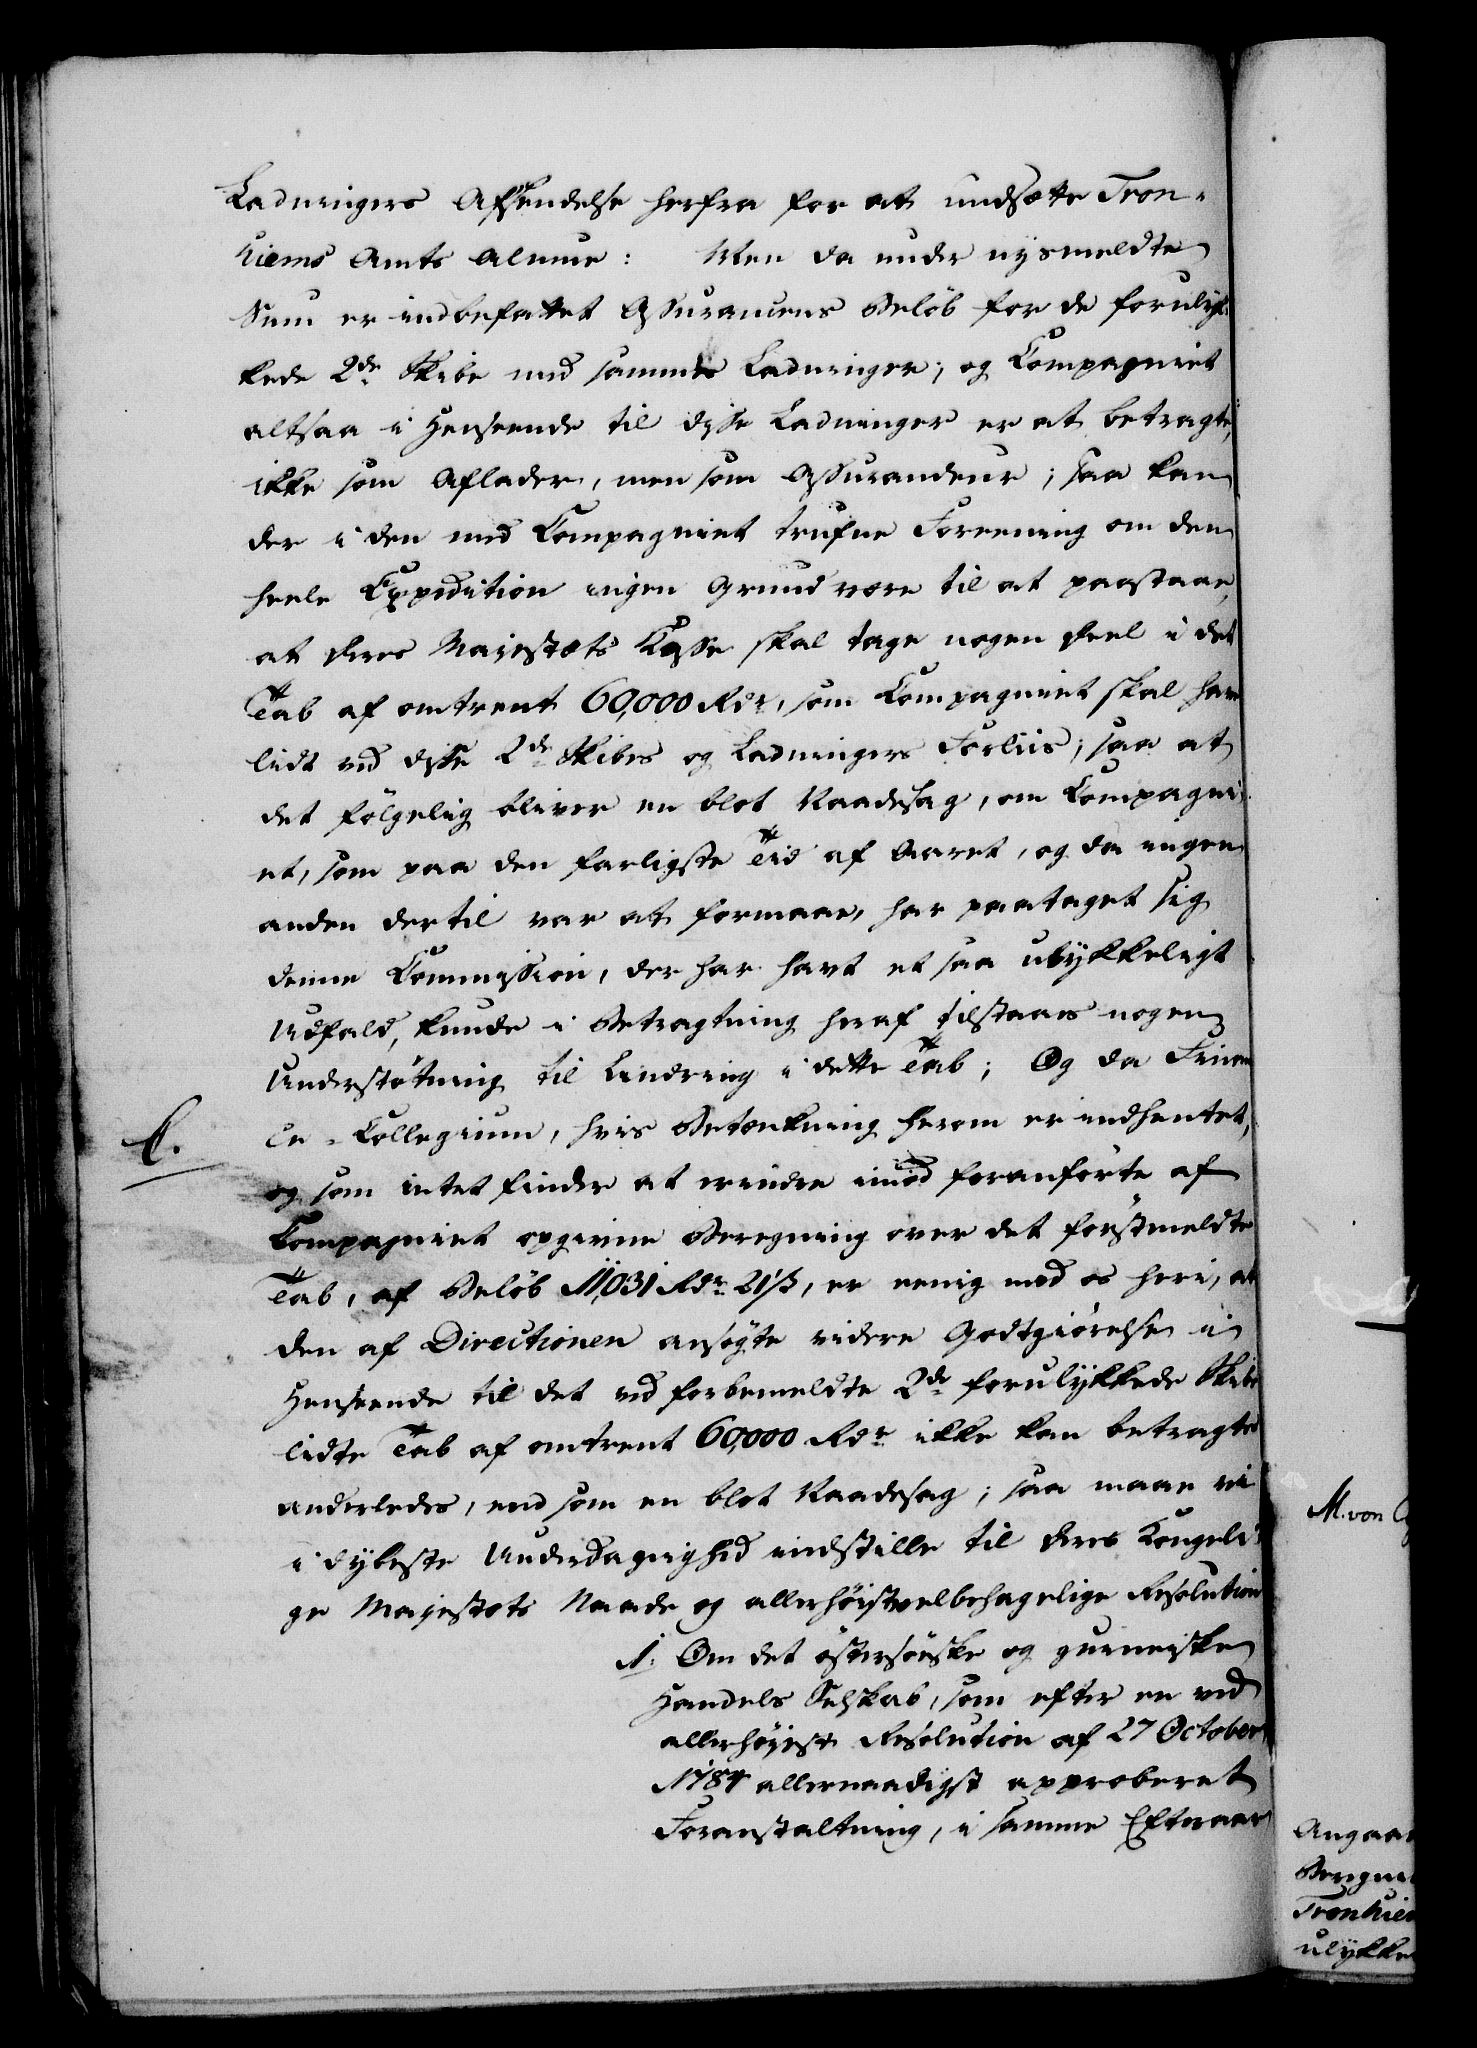 Ladningers Afsendelse herfra for at undsætte Tron-
hiems Amts Almue: Men da under nysmeldte
Sum er indbefattet Assurancens Beløb for de forulyk-
kede 2de Skibe med sammes Ladninger; og Compagniet
altsaa i Henseende til disse Ladninger er at betragte,
ikke som Aflader, men som Assurandeur; saa kan
der i den med Compagniet trufne Foreening om den
heele Expedition ingen Grund være til at paastaae,
at Deres Majestæts Kasse skal tage nogen Deel i det
Tab af omtrent 60,000 Rdr, som Compagniet skal have
lidt ved disse 2de Skibes og Ladningers Forliis; saa at
det følgelig bliver en blot Naadesag, om Compagni-
et, som paa den farligste Tid af Aaret, og da ingen
anden dertil var at formaae, har paataget sig
denne Commission, der har havt et saa ulykkeligt
Udfald, kunde i Betragtning heraf tilstaaes nogen
Understøtning til Lindring i dette Tab; Og da Finan-
ce-Collegium, hvis Betænkning herom er indhentet,
C.
og som intet finder at erindre imod foranførte af
Compagniet opgivne Beregning over det førstmeldte
Tab, af Beløb 11,031 Rdr 21 ß, er eenig med os heri, at
den af Directionen ansøgte videre Godtgiørelse i
Henseende til det ved forbemeldte 2de forulykkede Skibe
lidte Tab af omtrent 60,000 Rdr ikke kan betragtes
anderledes, end som en blot Naadesag; saa maae vi
i dybeste Underdanighed indstille til Deres Kongeli-
ge Majestæts Naade og allerhøistvelbehagelige Resolution
1. Om det østersøiske og guineiske
Handels Selskab, som efter en ved
allerhøyeste Resolution af 27 October
1784 allernaadigst approberet
Foranstaltning, i samme Efteraar
M. von
Angaae
Tronhiem
ulykke